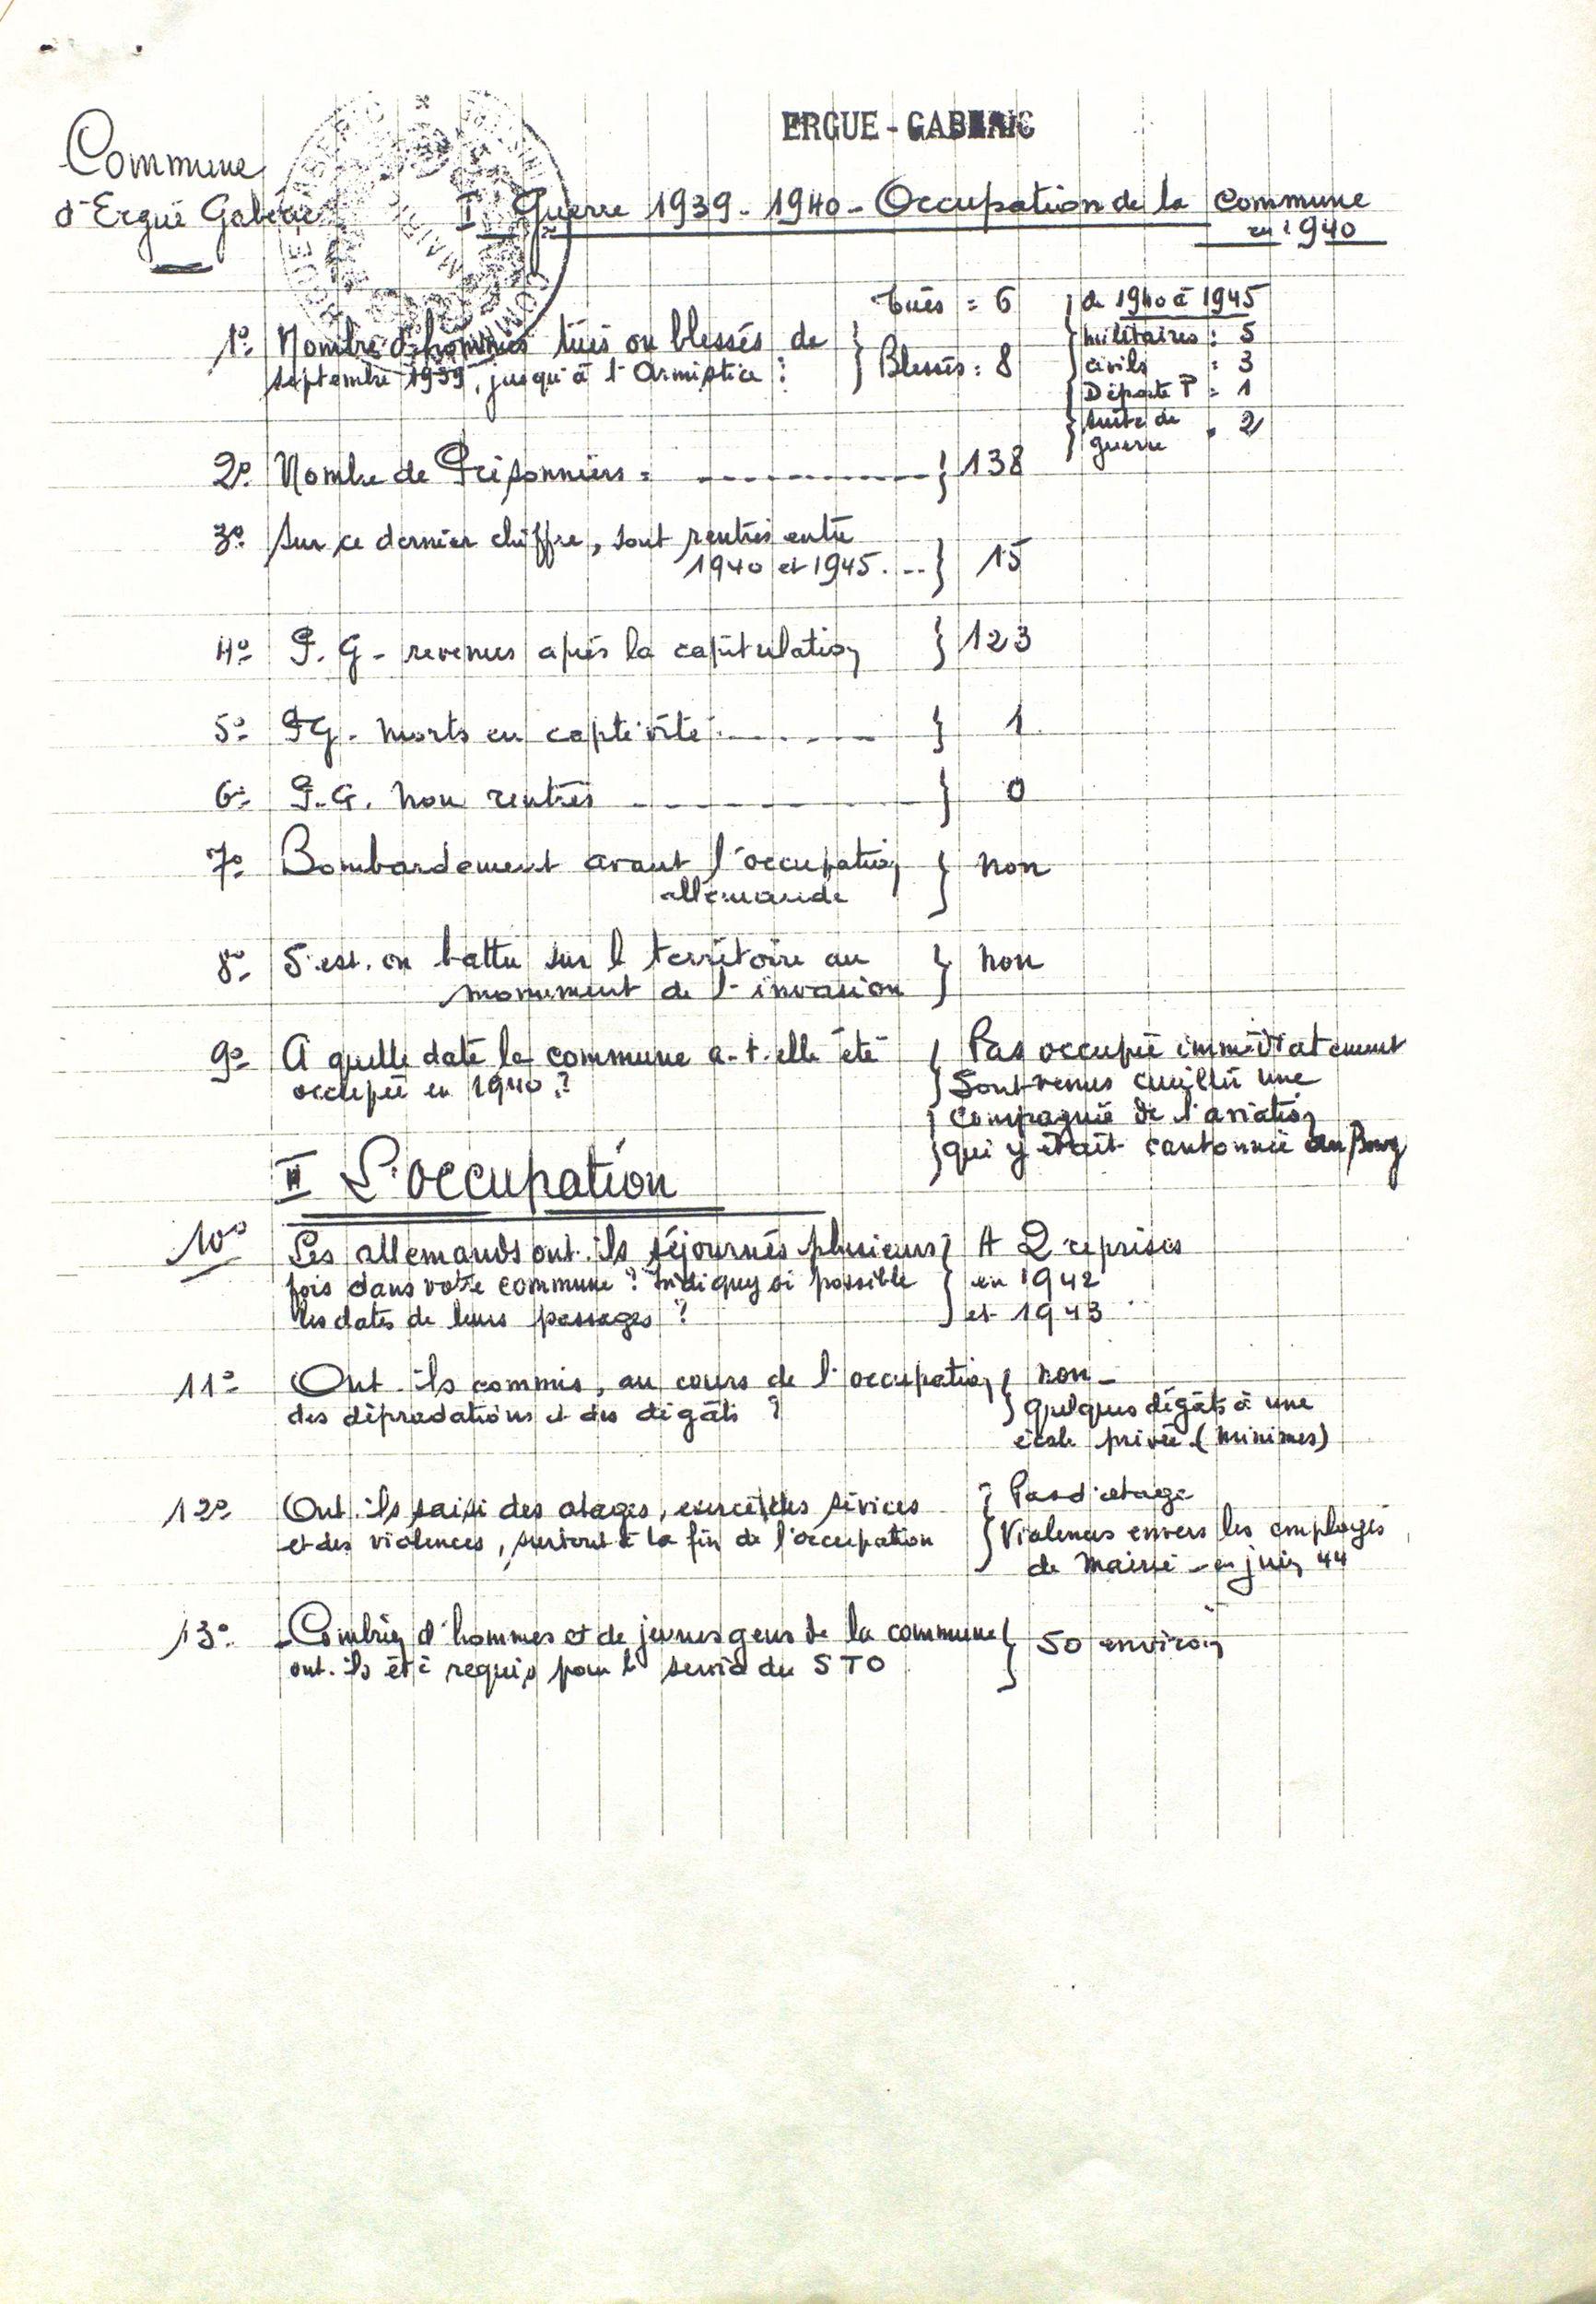 ERGUE-GABERIC
Commune
d'Ergué Gabéric
I Guerre 1939-1940 - Occupation de la Commune
en 1940
1º- Nombre d'hommes tués ou blessés de
septembre 1939, jusqu'à l'Armistice :
Tués = 6
Blessés : 8
de 1940 à 1945
militaires : 5
civils : 3
Déporté P = 1
suite de
guerre = 2
2º- Nombre de Prisonniers = 138
3º- Sur ce dernier chiffre, sont rentrés entre
1940 et 1945. 15
4º- P.G - revenus après la capitulation 123
5º- PG - morts en captivité 1
6º- P.G. non rentrés 0
7º- Bombardement avant l'occupation
allemande
non
8º- S'est-on battu sur le territoire au
monument de l'invasion
non
9º- A quelle date la commune a-t-elle été
occupée en 1940 ?
Pas occupée immédiatement
Sont venus cueillir une
compagnie de l'aviation
qui y était cantonnée au Bourg
II L'occupation
10º Les allemands ont-ils séjournés plusieurs
fois dans votre commune ? Indiquez si possible
les dates de leurs passages ?
A 2 reprises
en 1942
et 1943
11º- Ont-ils commis, au cours de l'occupation
des dépradations et des dégâts ?
non -
quelques dégâts à une
école privée (minimes)
12º- Ont-ils saisi des otages, exercé des sévices
et des violences, surtout à la fin de l'occupation
Pas d'otage
Violences envers les employés
de Mairie - en juin 44
13º- Combien d'hommes et de jeunes gens de la commune
ont-ils été requis pour le service du STO
50 environ